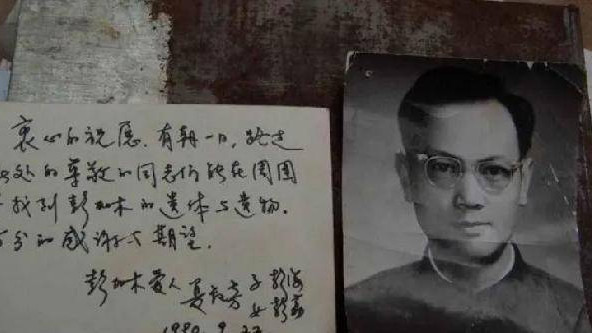 衷心的祝愿.有朝一日,路过
此处的尊敬的同志们能在周围
找到彭加木的遗体与遗物.
万分的感谢与期望.
彭加木爱人 夏叔芳 子 彭海
女 彭荔
1980.9.